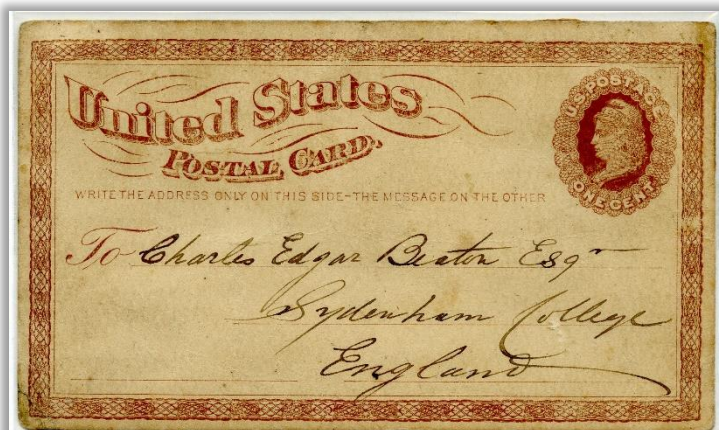 United States
POSTAL CARD.
U.S. POSTAGE
ONE CENT.
WRITE THE ADDRESS ONLY ON THIS SIDE-THE MESSAGE ON THE OTHER
To Charles Edgar Beaton Esqr
Sydenham College
England